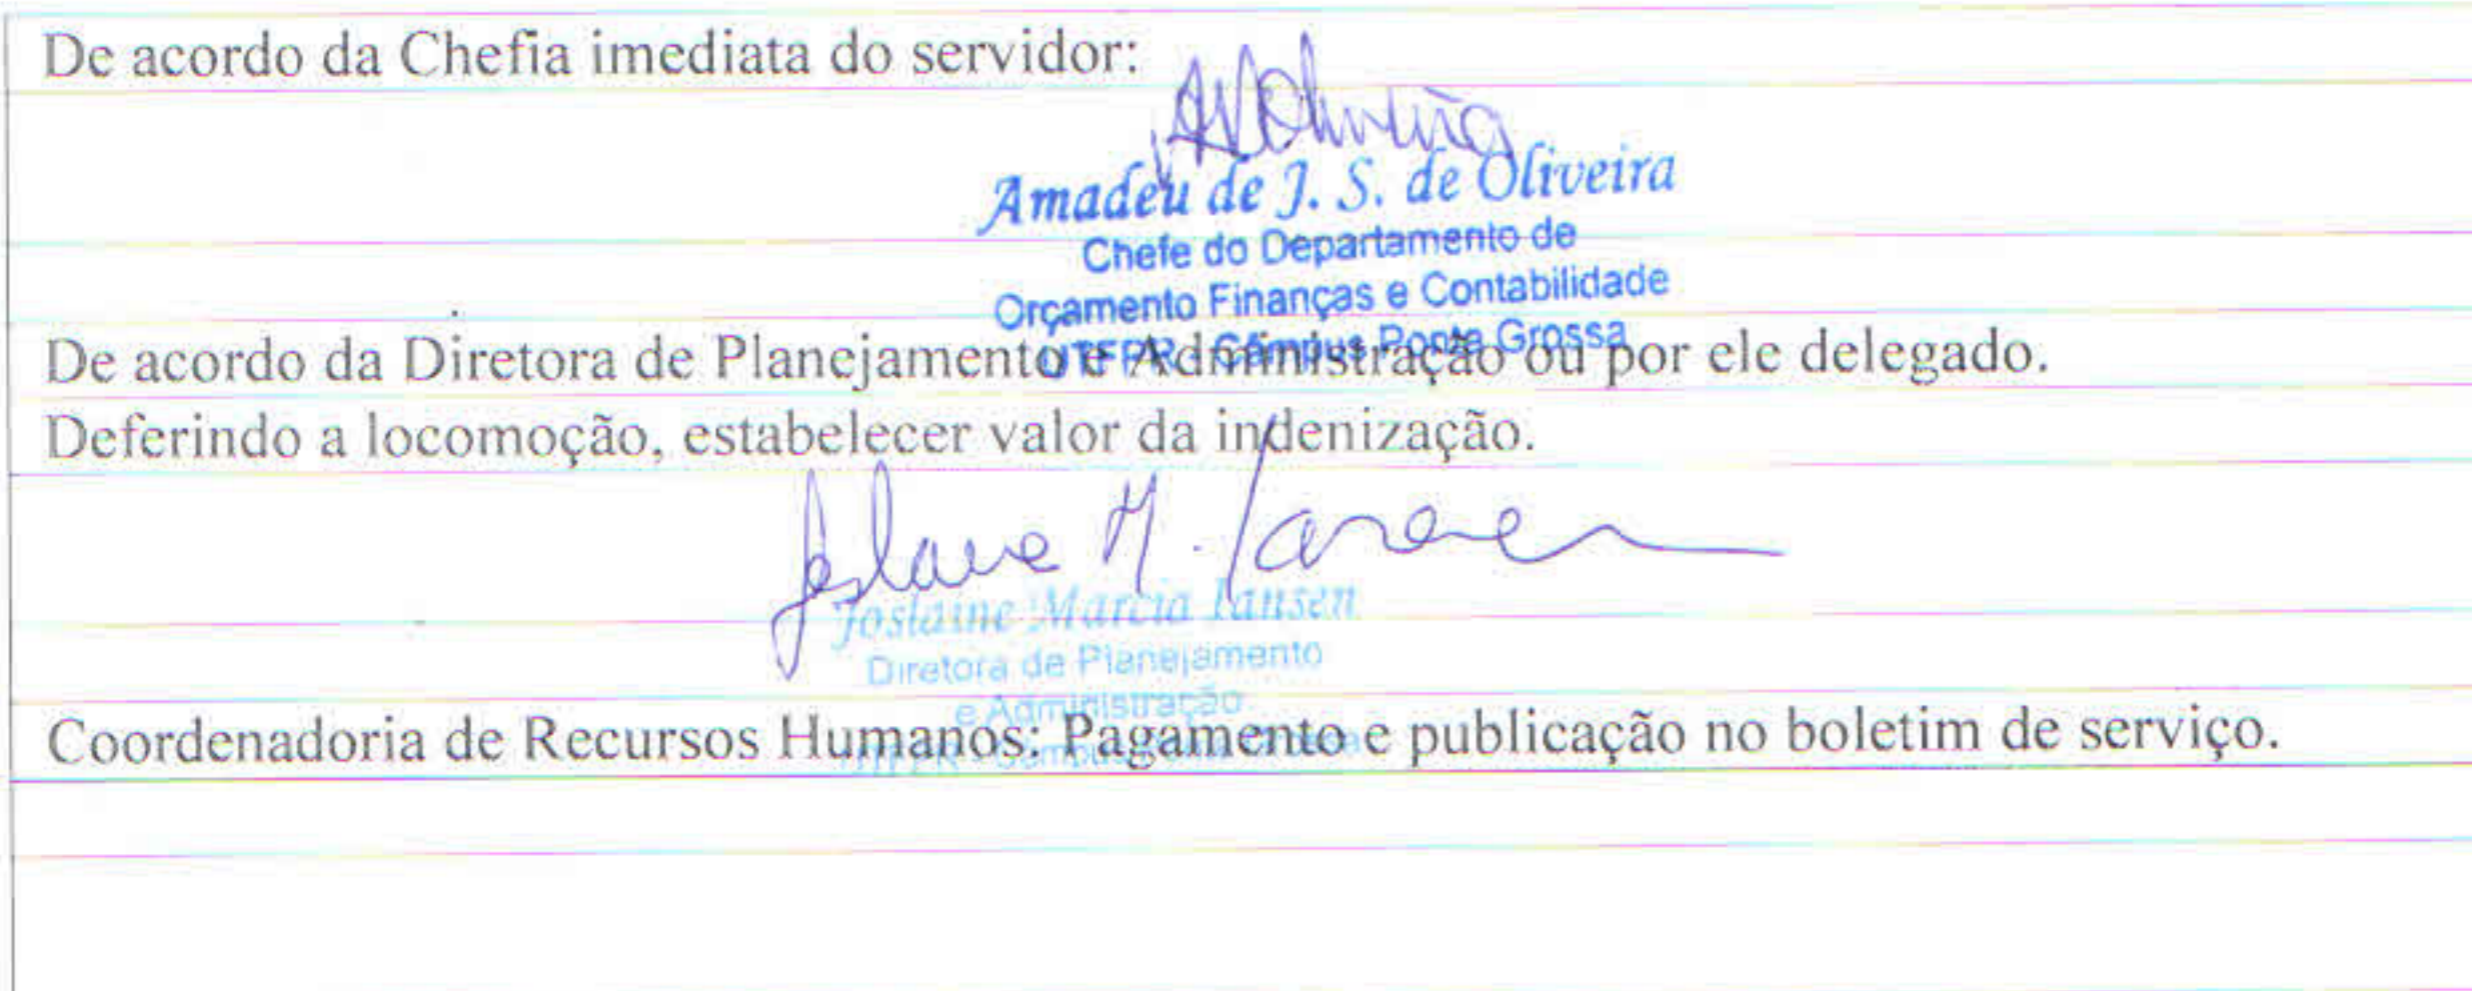 De acordo da Chefia imediata do servidor:
Amadeu de J. S. de Oliveira
Chefe do Departamento de
Orçamento Finanças e Contabilidade
UTFPR - Câmpus Ponta Grossa
De acordo da Diretora de Planejamento e Administração ou por ele delegado.
Deferindo a locomoção, estabelecer valor da indenização.
Joslaine Marcia Iansen
Diretora de Planejamento
e Administração
Coordenadoria de Recursos Humanos: Pagamento e publicação no boletim de serviço.